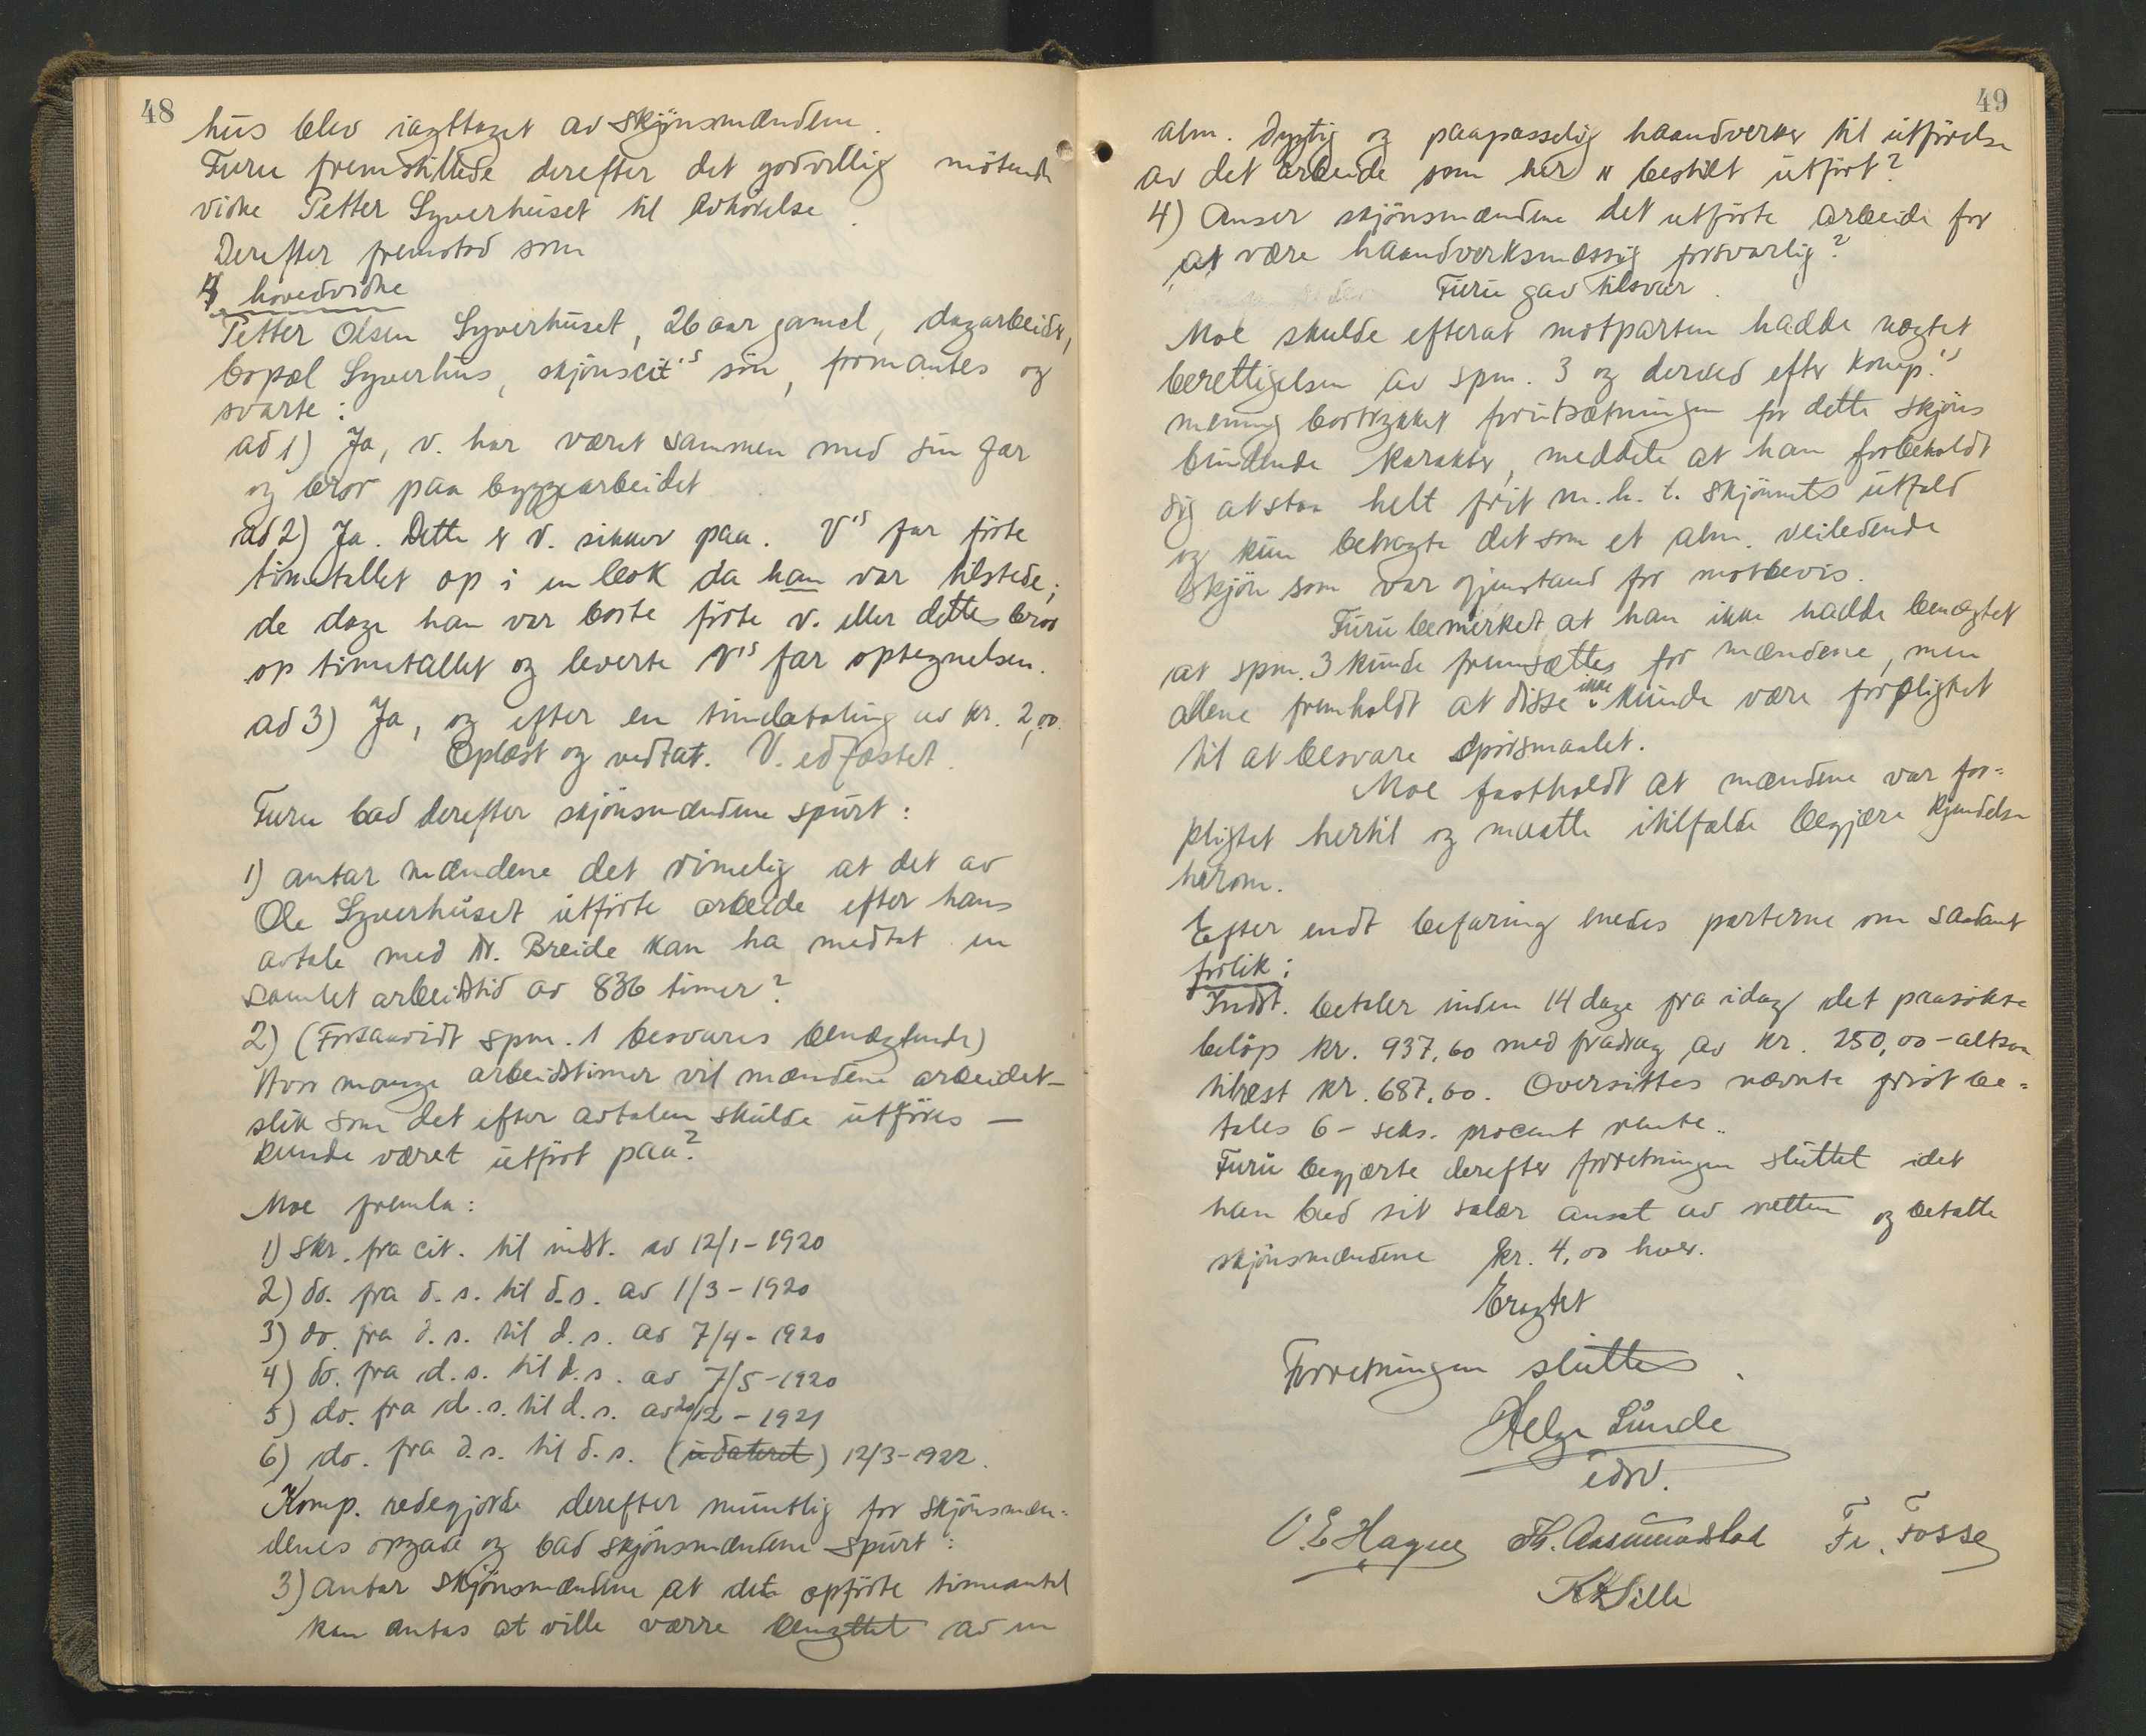 48
hus blev iagttaget av skjönsmændene.
Furu fremstillede derefter det godvillig mötende
vidne Petter Syverhuset til avhörelse.
Derefter fremstod som
4) hovedvidne
Petter Olsen Syverhuset, 26 aar gamel, dagarbeider,
bopæl Syverhus, skjönscit's sön, formantes og
svarte:
ad 1) Ja, v. har været sammen med sin far
og bror paa byggearbeidet
ad 2) Ja. Dette er v. sikker paa. V's far förte
timetallet op i en bok da han var tilstede;
de dage han var borte förte v. eller dettes bror
op timetallet og leverte V's far optegnelsen.
ad 3) Ja, og efter en timebetaling av kr. 2,00.
Oplæst og vedtat. V. edfæstet.
Furu bad derefter skjönsmændene spurt:
1) antar mændene det rimelig at det av
Ole Syverhuset utförte arbeide efter hans
avtale med N. Breide kan ha medtat en
samlet arbeidstid av 836 timer?
2) (Forsaavidt spm. 1 besvares benægtende)
Hvor mange arbeidstimer vil mændene arbeidet -
slik som det efter avtalen skulde utföres -
kunde været utfört paa?
Moe fremla:
1) Skr. fra cit. til indst. av 12/1 - 1920
2) do. fra d. s. til d. s. av 1/3 - 1920
3) do. fra d. s. til d. s. av 7/4 - 1920
4) do. fra d. s. til d. s. av 7/5 - 1920
5) do. fra d. s. til d. s. av 20/12 - 1921
6) do. fra d. s. til d. s. (udateret) 12/3 - 1922.
Komp. redegjorde derefter muntlig for skjönsmæn=
denes opgave og bad skjönsmændene spurt:
3) Antar skjönsmændene at dete opförte timeantal
kan antas at ville værre benyttet av en
49
alm. dygtig og paapasselig haandverker til utförelse
av det arbeide som her er bestilt utfört?
4) Anser skjönsmændene det utförte arbeide for
at være haandverksmæssig forsvarlig?
Furu gav tilsvar.
Moe skulde efterat motparten hadde nægtet
berettigelsen av spm. 3 og derved efter komp.'s
mening bortrykket forutsætningen for dette skjöns
bindende karakter, meddele at han forbeholdt
sig at staa helt frit m. h. t. skjönnets utfald
og kun betragte det som et alm. veiledende
skjön som var gjenstand for motbevis.
Furu bemerket at han ikke hadde benægtet
at spm. 3 kunde fremsættes for mændene, men
alene fremholdt at disse ikke kunde være forpligtet
til at besvare spörsmaalet.
Moe fastholdt at mændene var for=
pligtet hertil og maatte i tilfælde begjære kjendelse
herom.
Efter endt befaring enedes parterne om saadant
forlik:
Indst. betaler inden 14 dage fra idag det paasökte
belöp kr. 937,60 med fradrag av kr. 250,00 - altsaa
tilrest kr. 687,60. Oversittes nævnte frist be=
tales 6 - seks. procent rente.
Furu begjærte derefter forretningen sluttet idet
han bad sit salær ansat av retten og betalte
skjönsmændene kr. 4,00 hver.
Eragtet
Forretningen sluttes.
Helge Lunde
edsv.
O. E. Hagen
Fr. Fosse